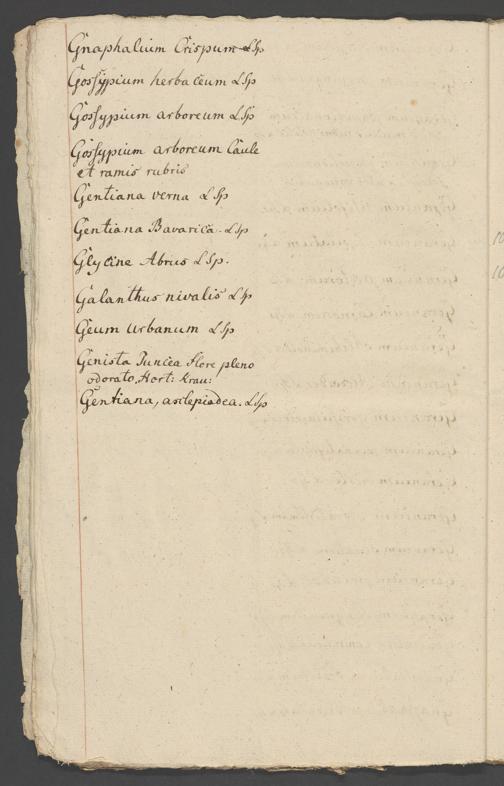 Gnaphalium Crispum LSp
Gossypium herbaceum LSp
Gossypium arboreum LSp
Gossypium arboreum Caule
et ramis rubris
Gentiana verna LSp
Gentiana Bavarica. LSp
Glycine Abrus LSp.
Galanthus nivalis LSp
Geum Urbanum LSp
Genista Juncea flore pleno
odorato, Hort: Krau:
Gentiana, asclepiadea. LSp